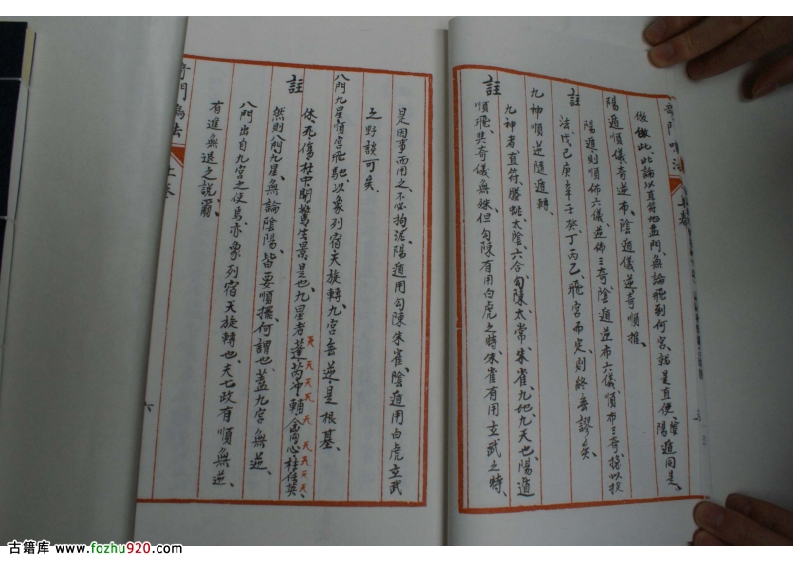 奇門鳴法 上卷
倣此、此論以直符地盤門、無論飛到何宮、就是直使、陰陽遁同是、
陽遁順儀奇逆布、陰遁儀逆奇順推、
陽遁則順佈六儀、逆佈三奇、陰遁逆布六儀、順布三奇、
註 法戊己庚辛壬癸丁丙乙、飛宮而定、則終無謬矣、
九神順逆隨遁轉、
九神者、直符、螣蛇、太陰、六合、勾陳、太常、朱雀、九地、九天也、陽遁
註 順飛、其奇儀無妹、但勾陳有用白虎之時、朱雀有用玄武之時、
是因事而用之、不必拘泥、陽遁用勾陳朱雀、陰遁用白虎玄武
之野談可矣、
八門九星順宮飛馳、以象列宿天旋轉、九宮無逆是根基、
註 休死傷杜中開驚生景是也、九星者蓬芮冲輔禽心柱任英、
天天天天天天天天天
然則八門九星、無論陰陽、皆要順擺、何謂也、蓋九宮無逆、
八門出自九宮之使焉、亦象列宿天旋轉也、夫七政有順無逆、
有進無退之說、
奇門鳴法 上卷
六
古籍库 www.fozhu920.com